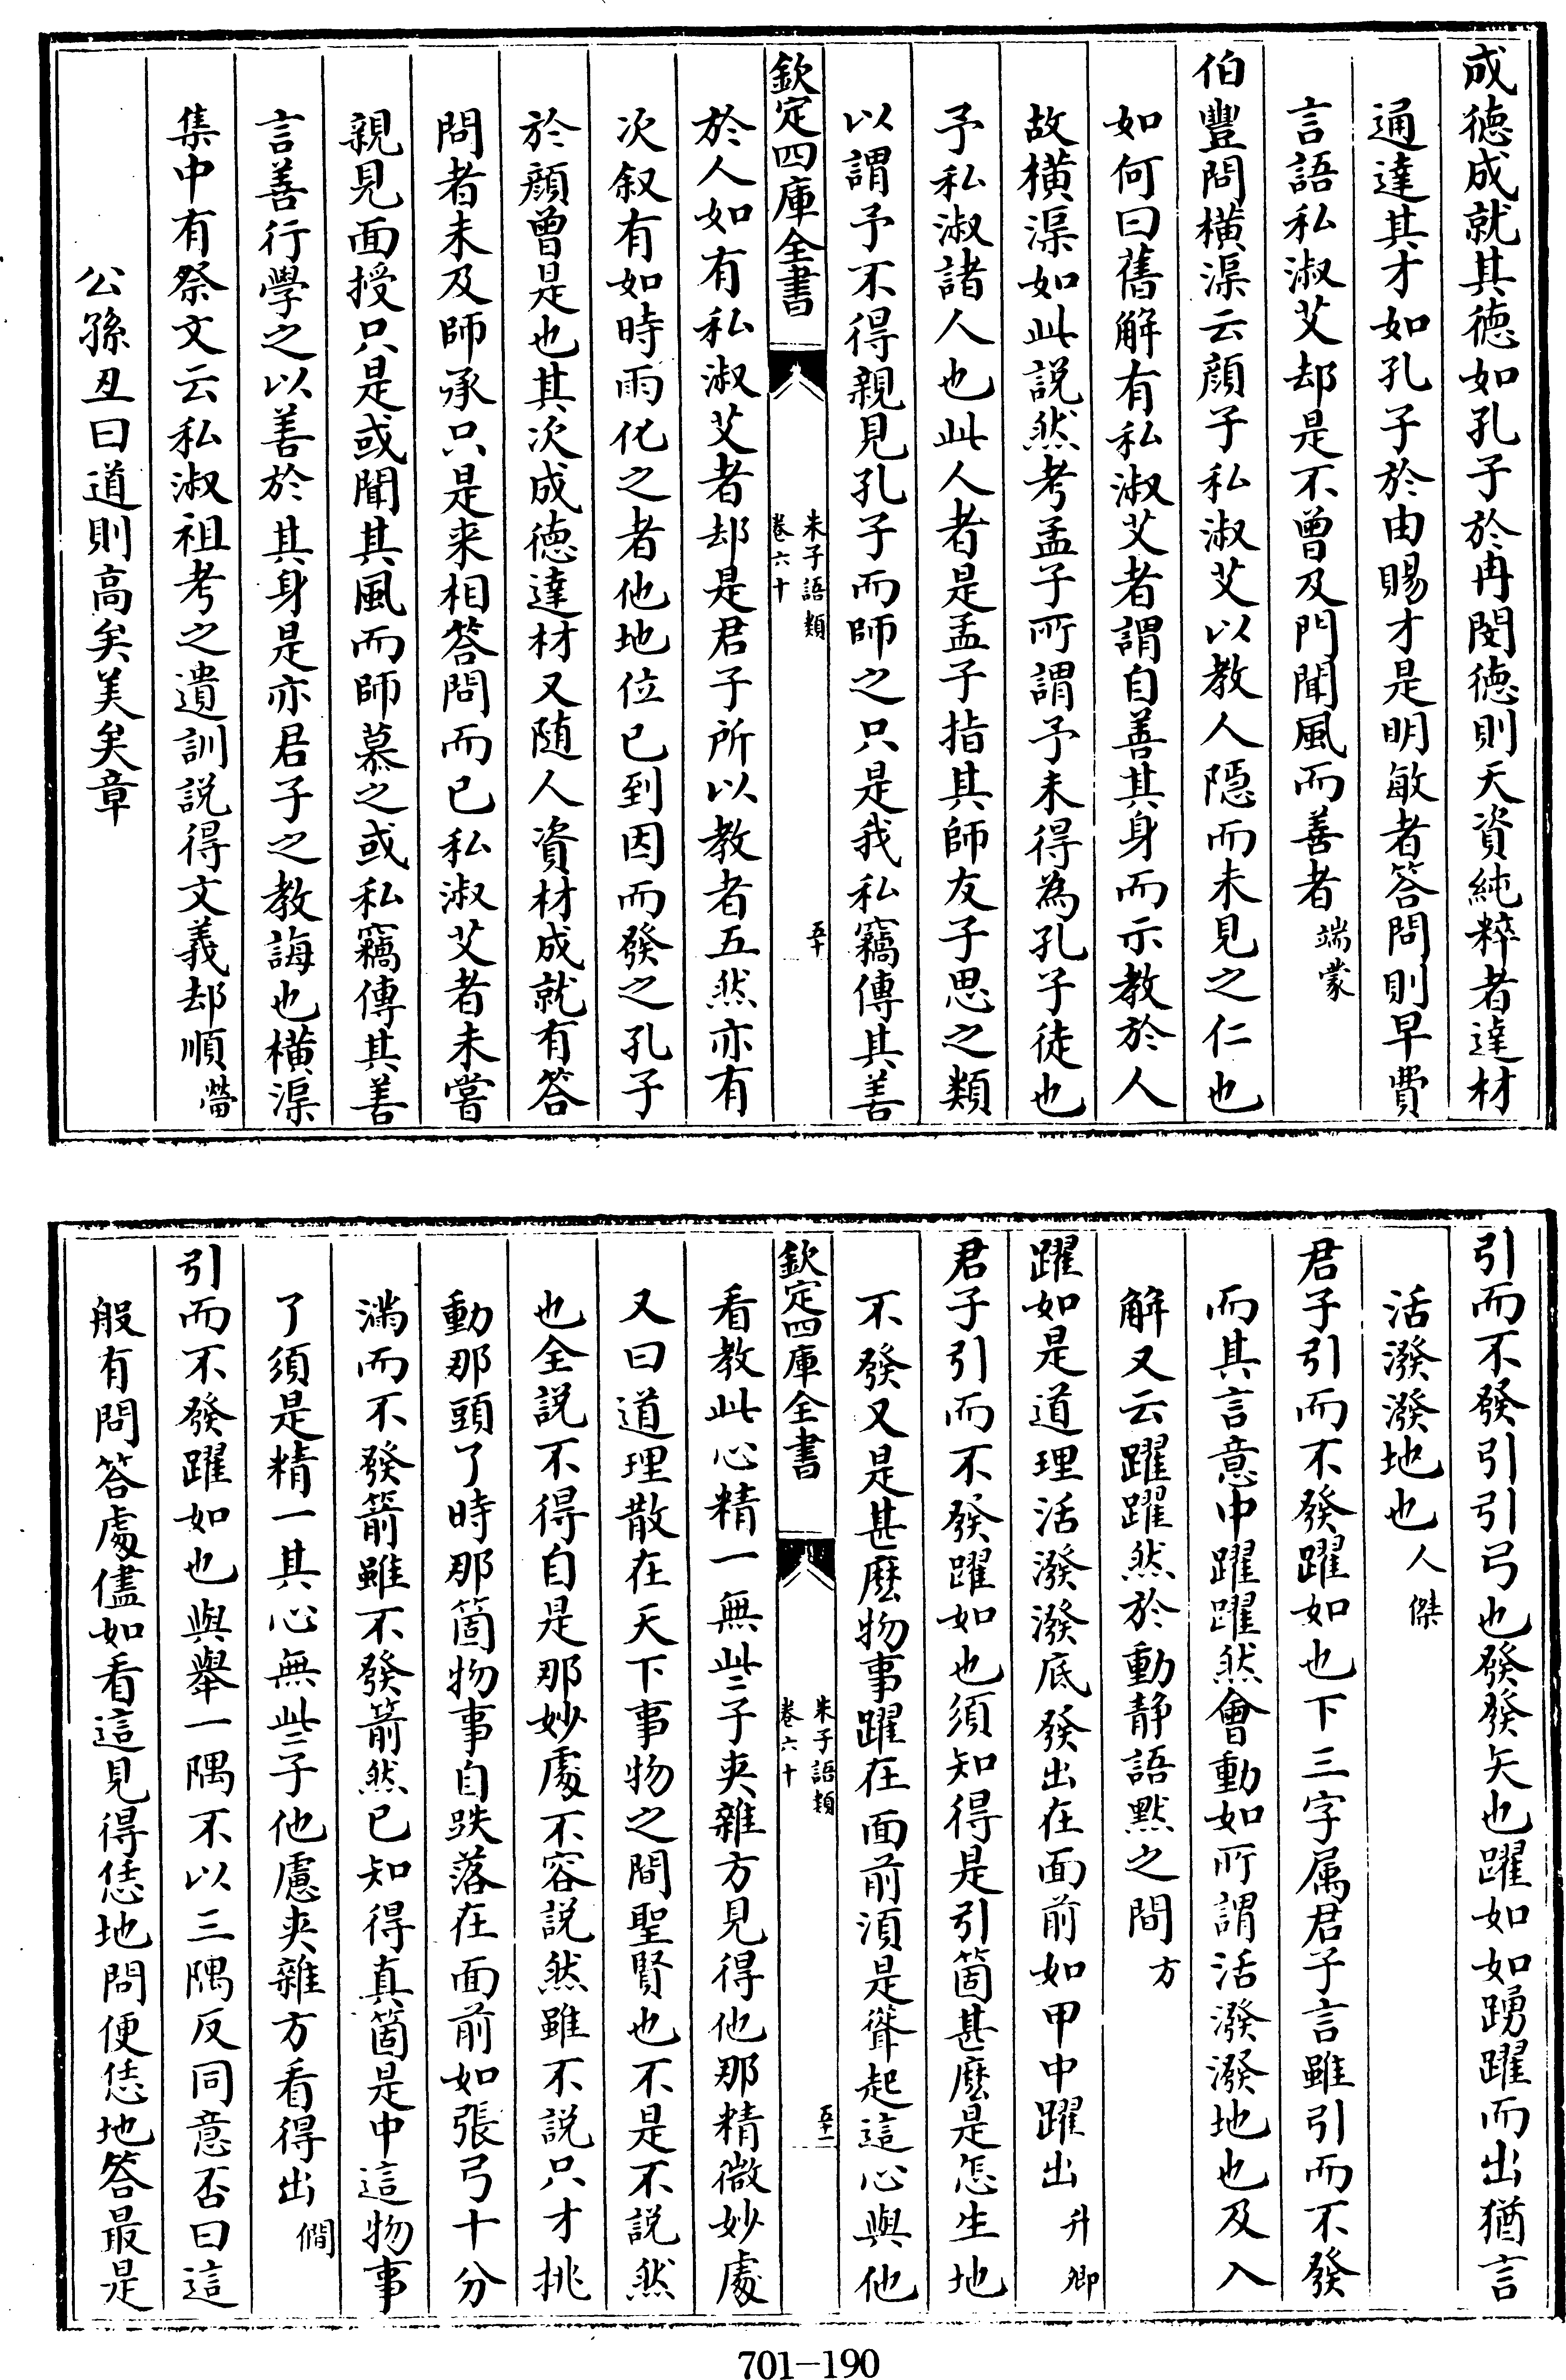 成德成就其德如孔子於冉閔德則天資純粹者達材
通達其才如孔子於由賜才是明敏者答問則早費
言語私淑艾却是不曾及門聞風而善者端蒙
伯豐問橫渠云顏子私淑艾以教人隱而未見之仁也
如何曰舊解有私淑艾者謂自善其身而示教於人
故橫渠如此說然考孟子所謂予未得為孔子徒也
予私淑諸人也此人者是孟子指其師友子思之類
以謂予不得親見孔子而師之只是我私竊傳其善
欽定四庫全書
朱子語類
卷六十
五十
於人如有私淑艾者却是君子所以教者五然亦有
次叙有如時雨化之者他地位已到因而發之孔子
於顏曾是也其次成德達材又随人資材成就有答
問者未及師承只是来相答問而已私淑艾者未嘗
親見面授只是或聞其風而師慕之或私竊傳其善
言善行學之以善於其身是亦君子之教誨也橫渠
集中有祭文云私淑祖考之遺訓說得文義却順㽦
公孫丑曰道則高矣美矣章
引而不發引引弓也發發矢也躍如如踴躍而出猶言
活潑潑地也人傑
君子引而不發躍如也下三字属君子言雖引而不發
而其言意中躍躍然會動如所謂活潑潑地也及入
解又云躍躍然於動静語黙之間方
躍如是道理活潑潑底發出在面前如甲中躍出升卿
君子引而不發躍如也須知得是引箇甚麽是怎生地
不發又是甚麽物事躍在面前須是聳起這心與他
欽定四庫全書
朱子語類
卷六十
五十一
看教此心精一無些子夾雜方見得他那精微妙處
又曰道理散在天下事物之間聖賢也不是不說然
也全說不得自是那妙處不容說然雖不說只才挑
動那頭了時那箇物事自跌落在面前如張弓十分
滿而不發箭雖不發箭然已知得真箇是中這物事
了須是精一其心無些子他慮夾雜方看得出僩
引而不發躍如也與舉一隅不以三隅反同意否曰這
般有問答處儘如看這見得恁地問便恁地答最是
701-190